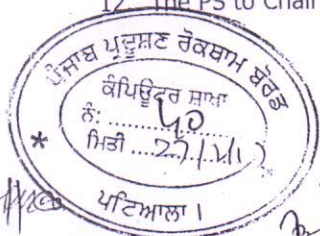 12. The PS to Chair
ਪੰਜਾਬ ਪ੍ਰਦੂਸ਼ਣ ਰੋਕਥਾਮ ਬੋਰਡ
ਕੰਪਿਊਟਰ ਸ਼ਾਖਾ
ਨੰ: ..........
ਮਿਤੀ ..........
* ਪਟਿਆਲਾ ।